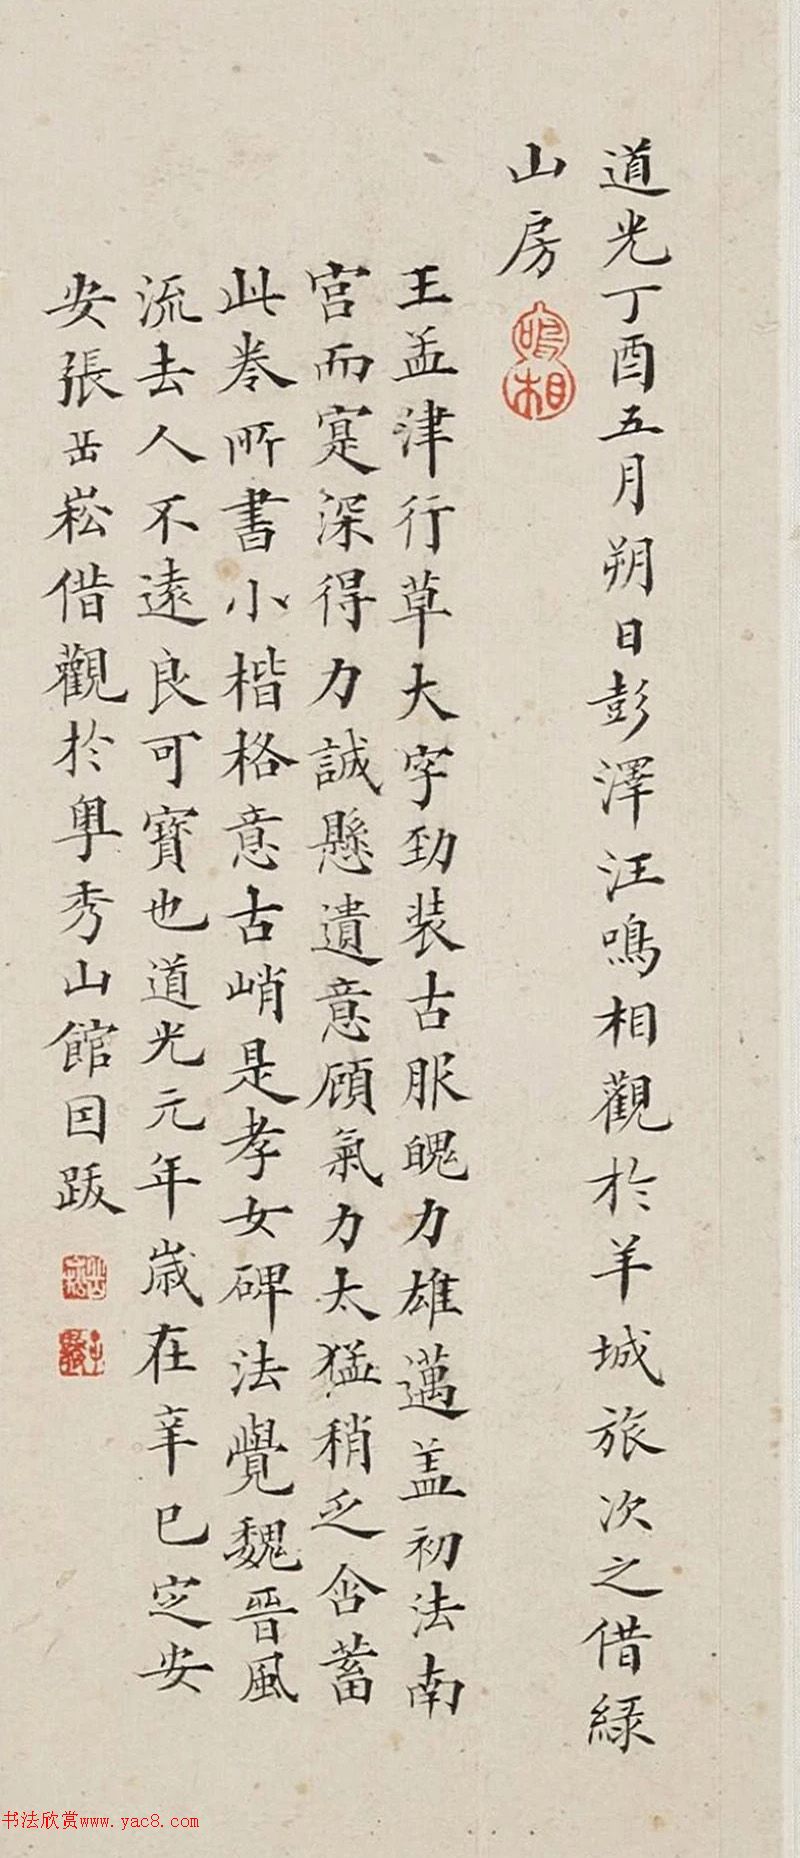 道光丁酉五月朔日彭澤汪鳴相觀於羊城旅次之借綠
山房
鳴相
王孟津行草大字勁装古服魄力雄邁盖初法南
宮而寔深得力誠懸遺意顧氣力太猛稍乏含蓄
此卷所書小楷格意古峭是孝女碑法覺魏晉風
流去人不遠良可寶也道光元年歲在辛巳定安
安張岳崧借觀於粵秀山館因跋
岳崧
书法欣赏www.yac8.com